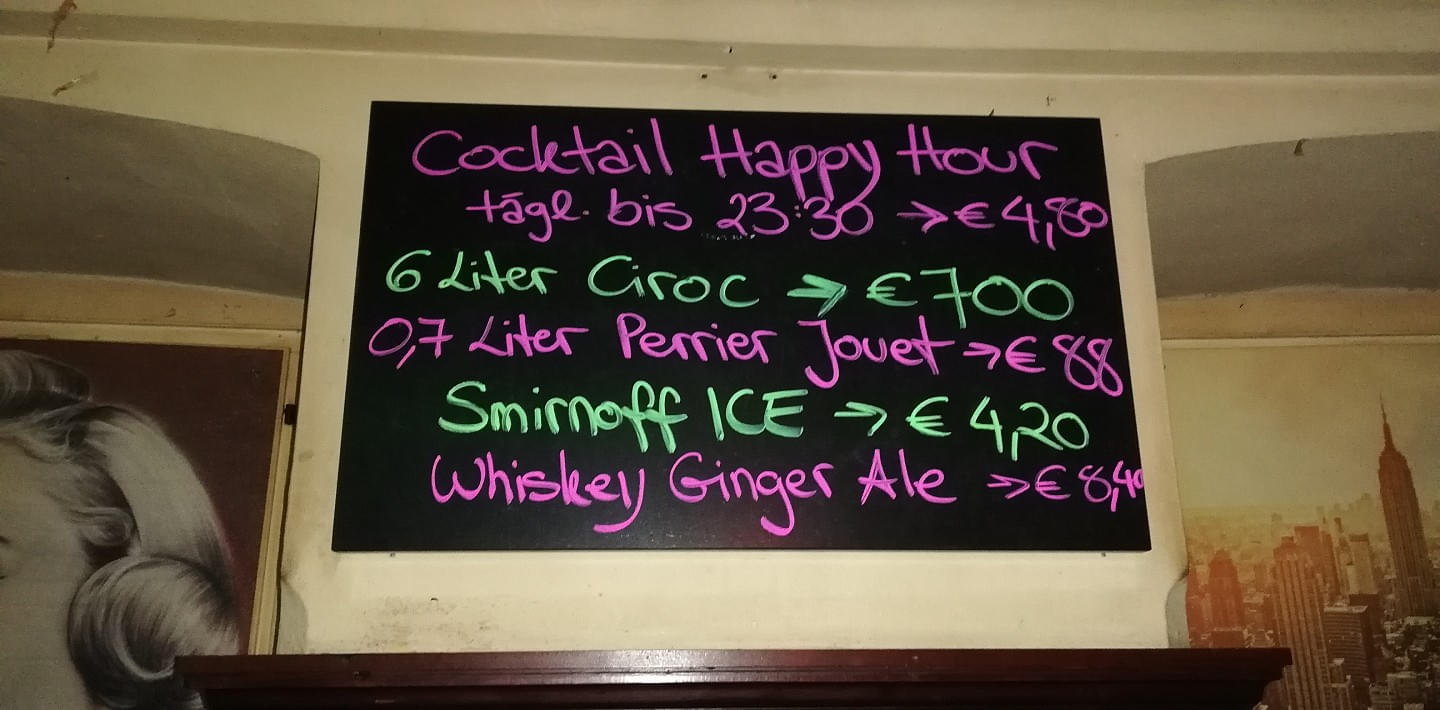 Cocktail Happy Hour
tägl. bis 23:30 → € 4,80
6 Liter Ciroc → € 700
0,7 Liter Perrier Jouet → € 88
Smirnoff ICE → € 4,20
Whiskey Ginger Ale → € 8,40